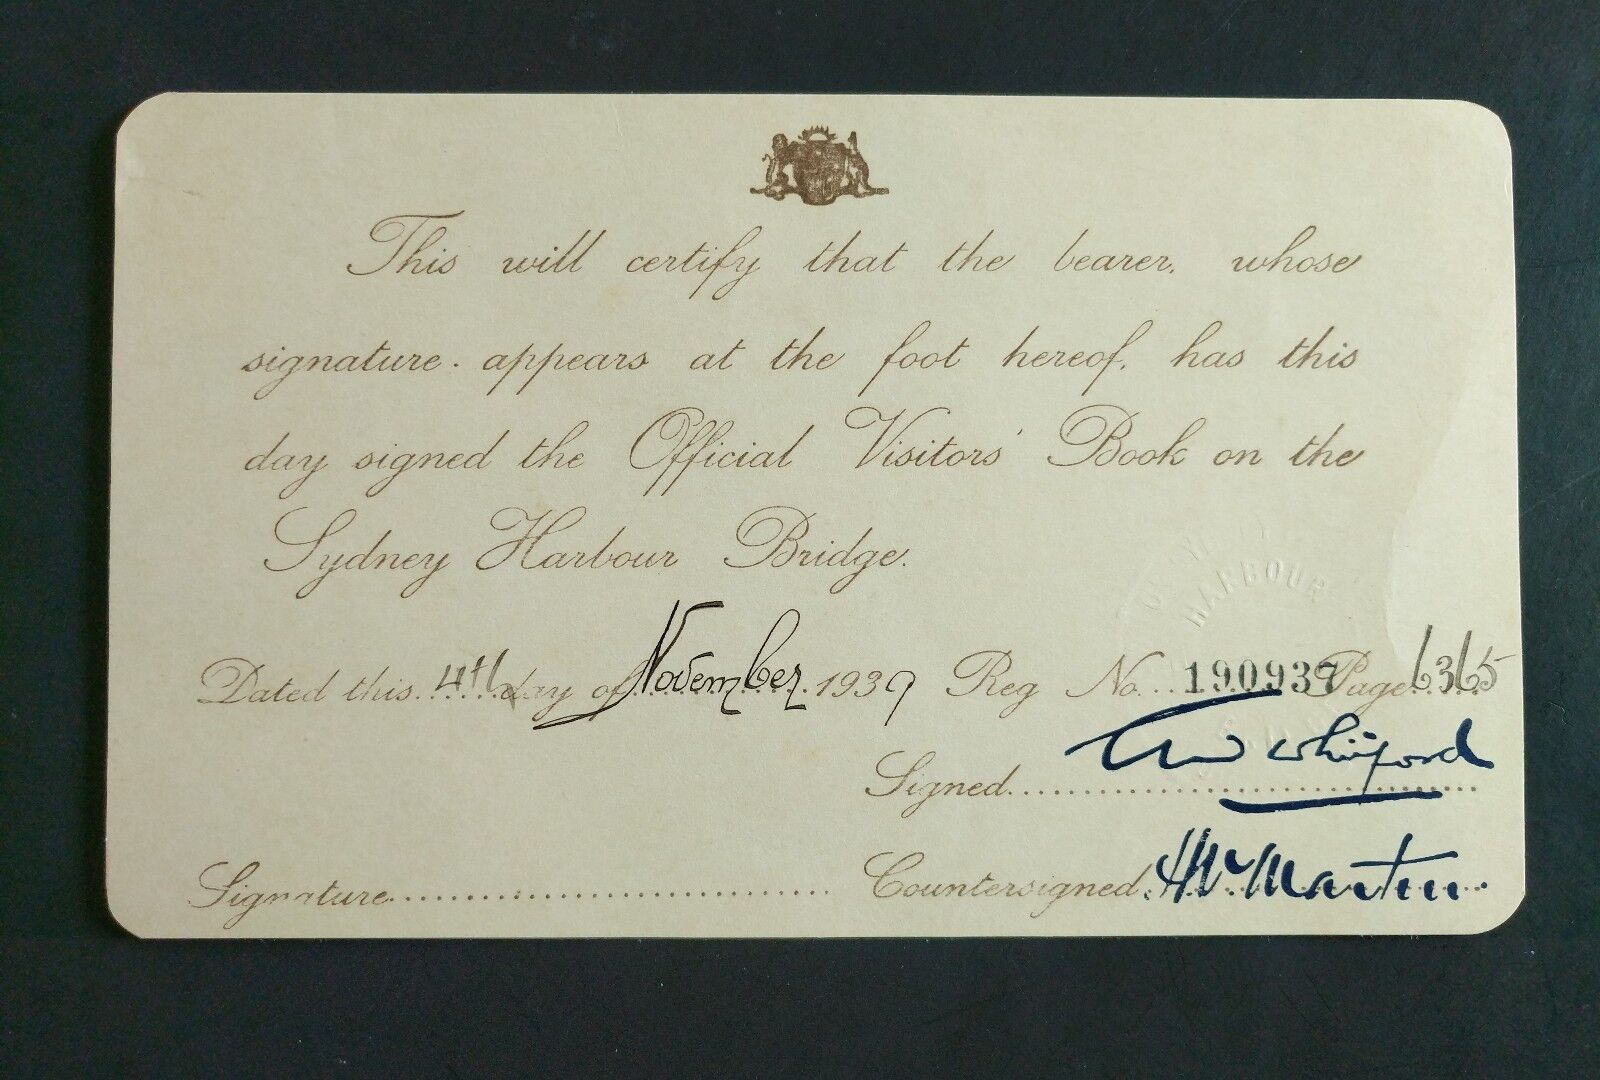 This will certify that the bearer, whose
signature, appears at the foot hereof, has this
day signed the Official Visitors' Book on the
Sydney Harbour Bridge.
HARBOUR
Dated this 4th day of November 1939 Reg No. 190937 Page 6365
Signed Whitford
Signature Countersigned H Martin